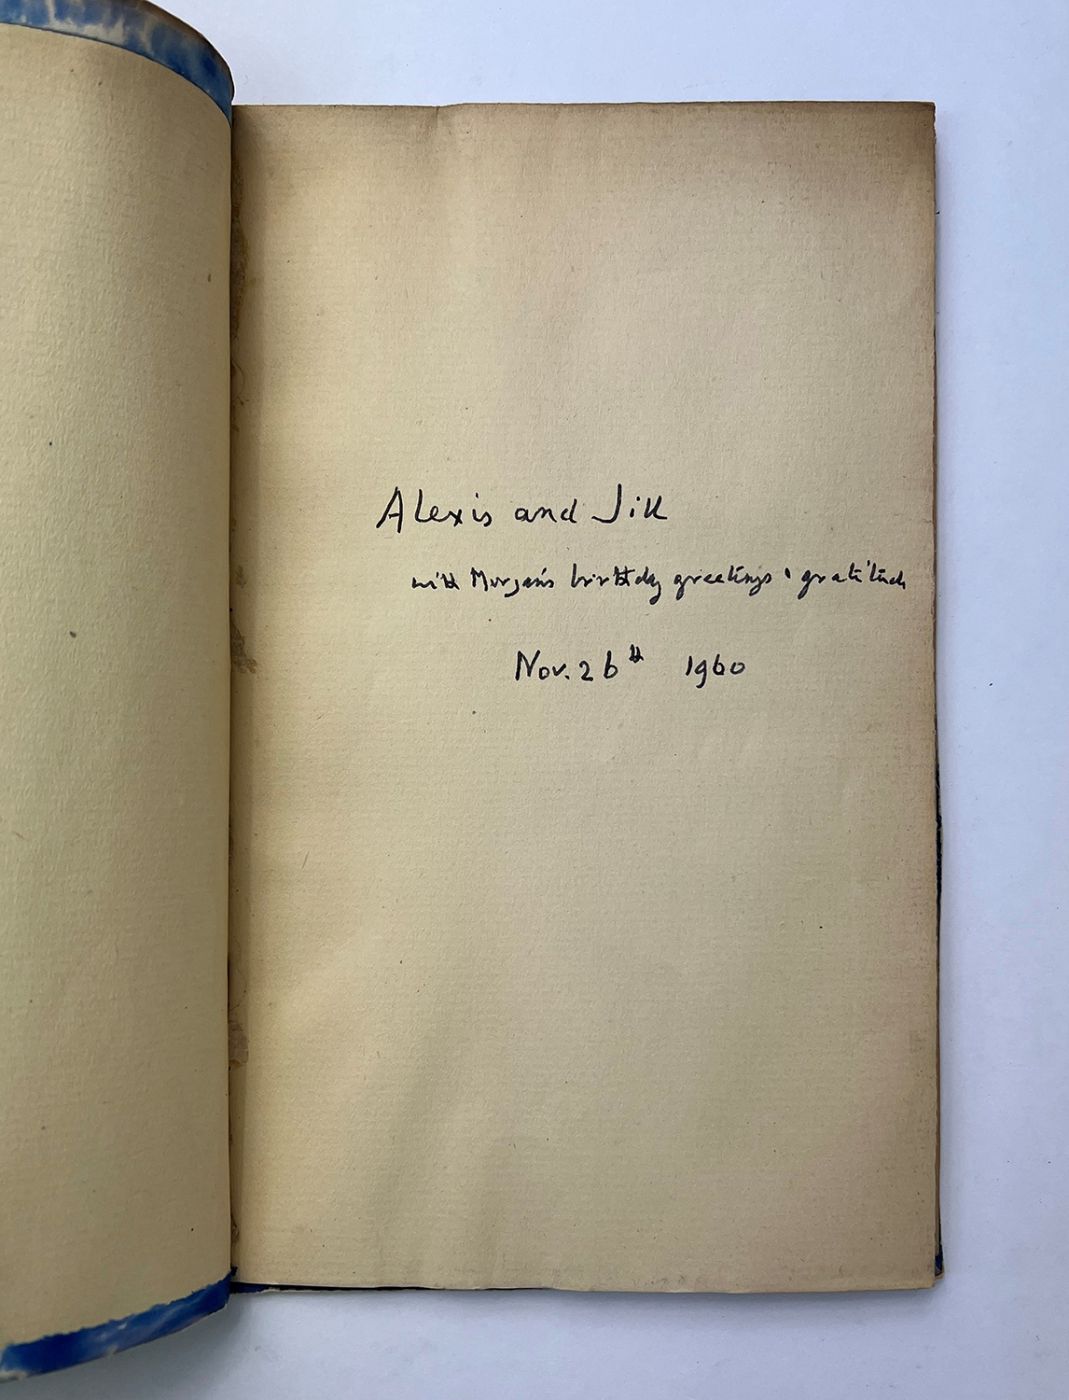 Alexis and Jill
with Morgan's birthday greetings & gratitude
Nov. 26th 1960